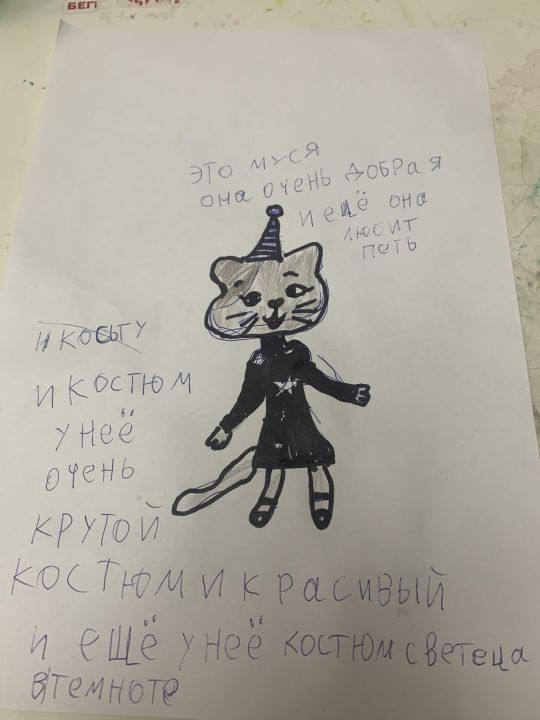 БЕГ
ЭТО МУСЯ
ОНа ОЧЕНЬ ДОБРаЯ
И ещё ОНа
ЛЮБИТ
ПеТЬ
И КОСТЮМ
У Неё
ОЧеНЬ
КРУТОЙ
КОСТЮМ И КРаСИВЫЙ
И ЕЩЁ У НеЁ КОСТЮМ СВеТеЦа
ВТеМНОТе